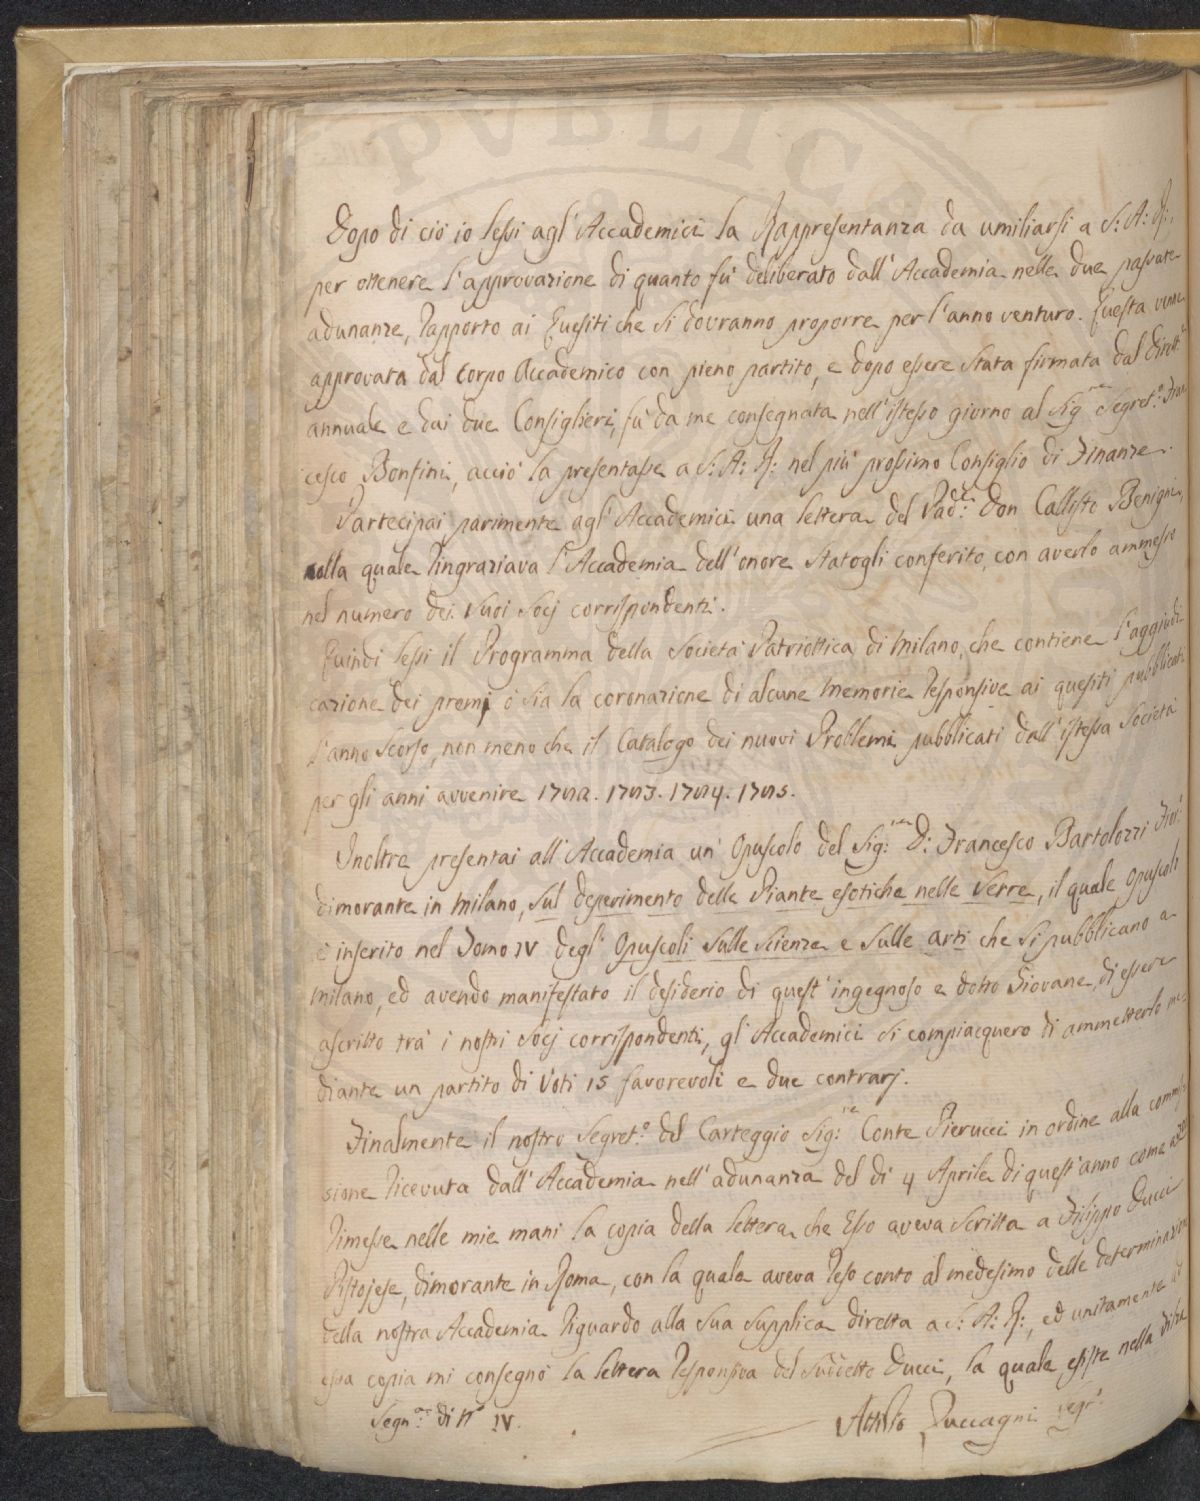 PVBLICA
Dopo di ciò io lessi agl'Accademici la Rappresentanza da umiliarsi a S: A: R:,
per ottenere l'approvazione di quanto fu deliberato dall'Accademia nelle due passate
adunanze, rapporto ai Quesiti che si dovranno proporre per l'anno venturo. Questa venne
approvata dal Corpo Accademico con pieno partito, e dopo essere stata firmata dal Dirett.e
annuale e dai due Consiglieri, fù da me consegnata nell'istesso giorno al Sig.re Segret.o Fran
cesco Bonfini, acciò la presentasse a S: A: R: nel più prossimo Consiglio di Finanze.
Partecipai parimente agl'Accademici una lettera del Pad.e Don Callisto Benigni,
nella quale ringraziava l'Accademia dell'onore statogli conferito, con averlo ammesso
nel numero dei suoi Socj corrispondenti.
Quindi lessi il Programma della Società Patriottica di Milano, che contiene l'aggiudi
cazione dei premj o sia la coronazione di alcune Memorie responsive ai quesiti pubblicati
l'anno scorso, non meno che il Catalogo dei nuovi Problemi pubblicati dall'istessa Società
per gli anni avvenire
Inoltre presentai all'Accademia un'Opuscolo del Sig.re D: Francesco Bartolozzi
dimorante in Milano, sul deperimento delle Piante esotiche nelle Serre, il quale Opuscolo
è inserito nel Tomo IV degl'Opuscoli sulle Scienze e sulle Arti che si pubblicano a
Milano, ed avendo manifestato il desiderio di quest'ingegnoso e dotto Giovane, di essere
ascritto trà i nostri Socj corrispondenti, gl'Accademici si compiacquero di ammetterlo me=
diante un partito di Voti 15 favorevoli e due contrarj.
Finalmente il nostro Segret.o del Carteggio Sig.re Conte Pierucci in ordine alla commis=
sione ricevuta dall'Accademia nell'adunanza del dì 4 Aprile di quest'anno come
rimesse nelle mie mani la copia della lettera che Esso aveva scritta a Filippo Ducci
Pistojese, dimorante in Roma, con la quale aveva reso conto al medesimo delle determinazioni
della nostra Accademia riguardo alla sua supplica diretta a S: A: R:, ed unitamente ad
essa copia mi consegnò la lettera responsiva del suddetto Ducci, la quale esiste nella filza
Segn.a di N.o IV.
Attilio Zuccagni Segr.